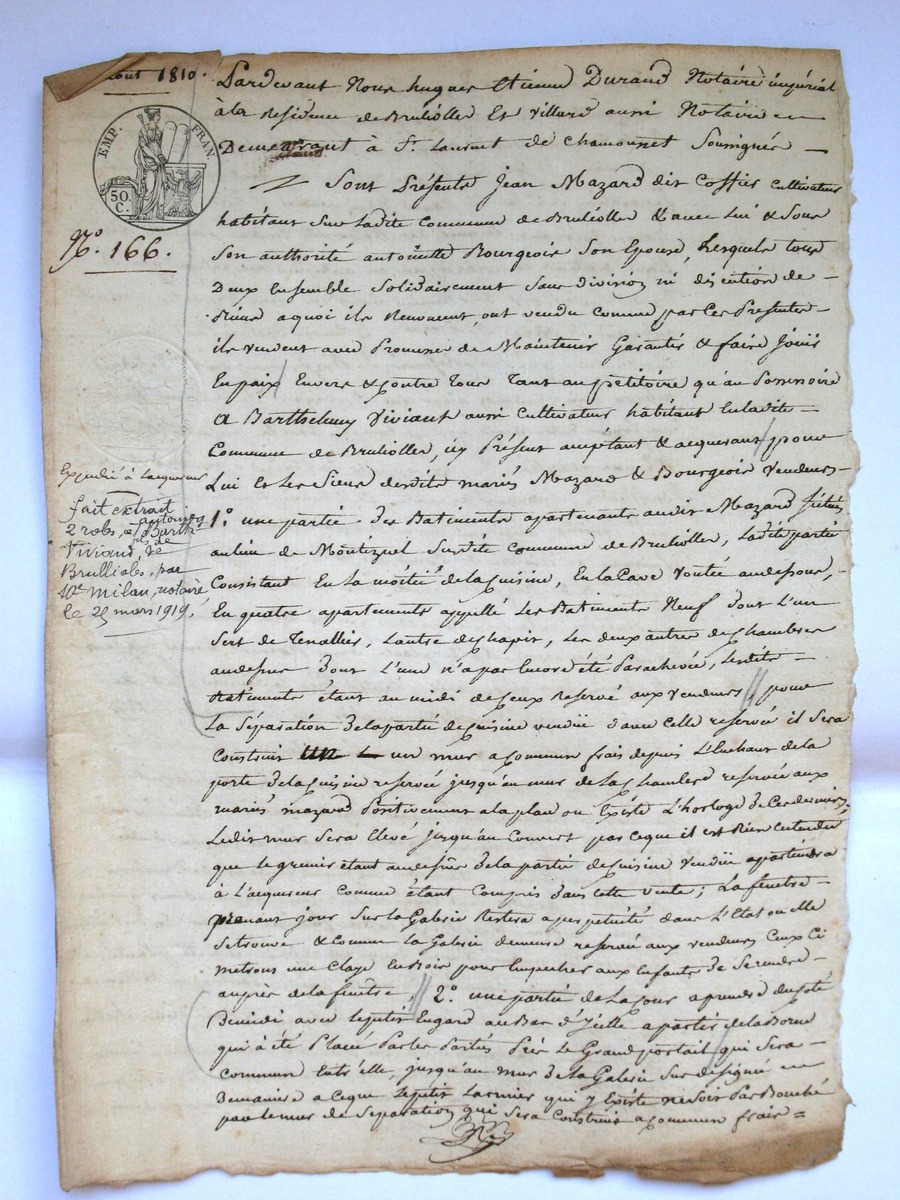 out 1810.
EMP. FRAN.
50. C.
N.o 166.
Expedié à Lacquereur
fait extrait
2 robs, a Antoine
fils de Barth.
Viviand, de
Brullioles, par
Me Milan, notaire
le 29 mars 1919,
Pardevant Nous hugues Etienne Durand Notaire impérial
à la Residence de Brullolles Et Villard aussi Notaire
Demeurant à St. Laurent de Chamousset Soussignés
Sont Présents Jean Mazard dit Coffier Cultivateur
habitant Sur Ladite Commune de Brullolles & avec Lui & Sous
Son authorité antoinette Bourgeois Son Epouse, Lesquels tous
Deux Ensemble Solidairement Sans division ni discution de
Biens a quoi ils Renoncent, ont vendu comme par Ces Presentes
ils vendent avec Promesse de Maintenir Garantir & faire Jouir
En paix Envers & Contre Tous Tant au petitoire qu'au Possessoire
A Barthelemy Viviant aussi Cultivateur habitant En ladite
Commune de Brullolles, icy Présent acceptant & acquerant pour
Lui Et Les Siens desdits mariés Mazard & Bourgeois Vendeurs
1.o une partie des Batiments apartenants audit Mazard situés
au lieu de Montizuel Susdite Commune de Brullolles, Ladite partie
Consistant En La moitié de la Cuisine, En La Cave Voutée audessous,
En quatre apartements appellé Les Batiments Neuf dont L'un
Sert de Tenallier, Lautre de Chapit, Les deux autres de Chambres
audessus dont L'une n'a pas Encore été Parachevée, Lesdits
Batiments étant au midi de Ceux Reservé aux Vendeurs, pour
La Séparation de la partie de Cuisine vendüe d'avec Celle reservée il Sera
Construit un mur a Commun frais depuis L'Enchant de la
porte de la Cuisine reservée jusqu'au mur de La Chambre reservée aux
mariés mazard Positivement a la place ou Existe L'horloge de Ces derniers,
Ledit mur Sera Elevé jusqu'au Couvert parceque il est Bien Entendu
que le grenier étant audessus de la partie de Cuisine Vendüe apartiendra
à L'acquereur Comme étant Compris dans Cette Vente; La fenêtre
prenant jour Sur la Galerie Restera a perpetuité dans L'Etat ou elle
Se trouve & Comme La Galerie demeure reservée aux vendeurs Ceux Ci
metrons une Claye En Bois pour Empecher aux Enfants de Se rendre
auprès de la fenêtre, 2.o une partie de La Cour a prendre du Coté
De midi avec Le petit Engard au Bas d'Icelle a partir de la Borne
qui à été Placé Par Les Parties Près Le Grand portail qui Sera
Commun Entr'elle, jusqu'au mur de La Galerie Sus désigné
De maniere a Ceque Le petit Larmier qui y Existe ne Soit Pas Bouché
par le mur de Separation qui Sera Construit a Commun frais